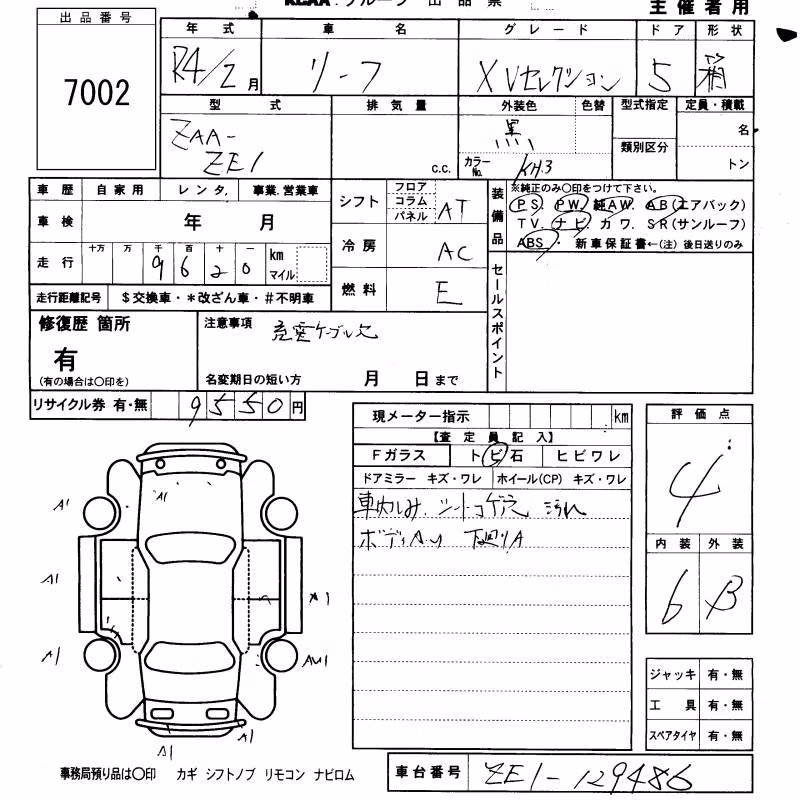 KCAA.グループ 出品票
主催者用
出品番号
7002
年式 車名 グレード ドア 形状
R4/2月 リーフ XVセレクション 5 箱
型式 排気量 外装色 色替 型式指定 定員・積載
ZAA-
ZE1
c.c.
黒
カラーNo. KH3
類別区分
名
トン
車歴 自家用 レンタ. 事業.営業車
車検 年 月
走行 十万 万 千 百 十 一
9 6 2 0 km マイル
走行距離記号 $交換車・*改ざん車・#不明車
シフト フロア コラム パネル AT
冷房 AC
燃料 E
装備品
※純正のみ○印をつけて下さい。
PS. PW. 純AW. AB(エアバック)
TV. ナビ. カワ. SR(サンルーフ)
ABS・ 新車保証書←(注)後日送りのみ
セールスポイント
修復歴 箇所
有
(有の場合は○印を)
注意事項 充電ケーブル欠
名変期日の短い方 月 日まで
リサイクル券 有・無 9550円
現メーター指示 km
【査定員記入】
Fガラス トビ石 ヒビワレ
ドアミラー キズ・ワレ ホイール(CP) キズ・ワレ
車内しみ. シートコゲ穴 汚れ
ボディA.U 下廻りA
評価点
4
内装 外装
6 B
A1
A1
A1
A1
A1
AU1
A1
A1
A1
ジャッキ 有・無
工具 有・無
スペアタイヤ 有・無
事務局預り品は○印 カギ シフトノブ リモコン ナビロム
車台番号 ZE1-129486